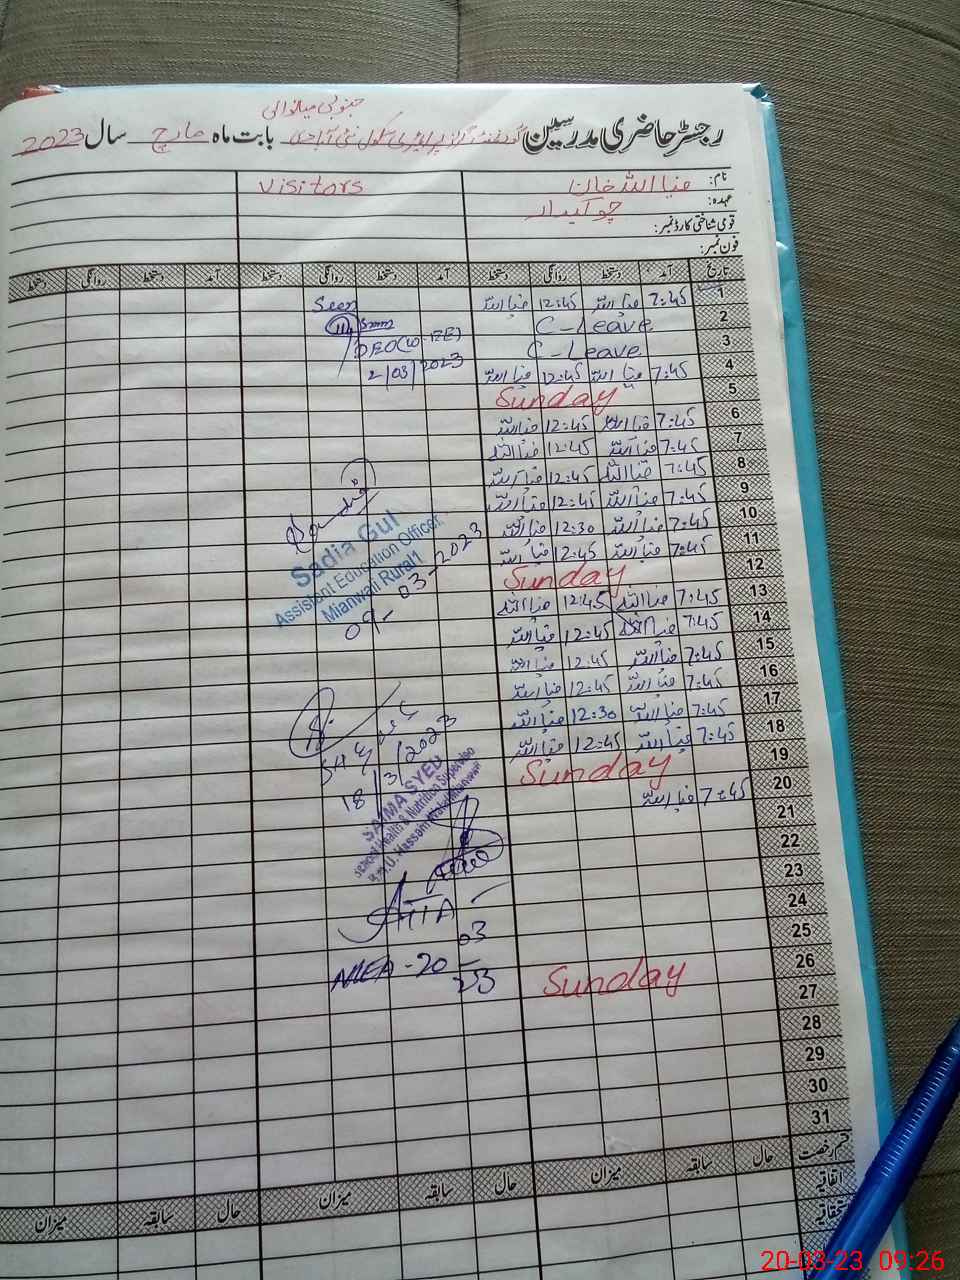 جنوبی میانوالی
رجسٹر حاضری مدرسین گورنمنٹ گرلز پرائمری سکول نئی آبادی بابت ماہ مارچ سال 2023
نام: ضیا اللہ خان visitors
عہدہ: چوکیدار
قومی شناختی کارڈ نمبر:
فون نمبر:
تاریخ آمد دستخط روانگی دستخط آمد دستخط روانگی دستخط آمد دستخط روانگی دستخط
1 7:45 ضیا اللہ 12:45 ضیا اللہ Seen
2 C-Leave
3 C-Leave DEO(W-EE)
4 7:45 ضیا اللہ 12:45 ضیا اللہ 2/03/2023
5 Sunday
6 7:45 ضیا اللہ 12:45 ضیا اللہ
7 7:45 ضیا اللہ 12:45 ضیا اللہ
8 7:45 ضیا اللہ 12:45 ضیا اللہ
9 7:45 ضیا اللہ 12:45 ضیا اللہ
10 7:45 ضیا اللہ 12:30 ضیا اللہ
11 7:45 ضیا اللہ 12:45 ضیا اللہ
12 Sunday
Sadia Gul
Assistant Education Officer
Mianwali Rural1
09-03-2023
13 7:45 ضیا اللہ 12:45 ضیا اللہ
14 7:45 ضیا اللہ 12:45 ضیا اللہ
15 7:45 ضیا اللہ 12:45 ضیا اللہ
16 7:45 ضیا اللہ 12:45 ضیا اللہ
17 7:45 ضیا اللہ 12:30 ضیا اللہ
18 7:45 ضیا اللہ 12:45 ضیا اللہ
19 Sunday
18/3/2023
SAIMA SYED
School Health & Nutrition Supervisor
20 7:45 ضیا اللہ
21
22
23
24
25
26 Sunday
ATTA
MEA-20
03
23
27
28
29
30
31
قسم رخصت حال سابقہ میزان حال سابقہ میزان حال سابقہ میزان
اتفاقیہ
استحقاقیہ
20-03-23 09:26